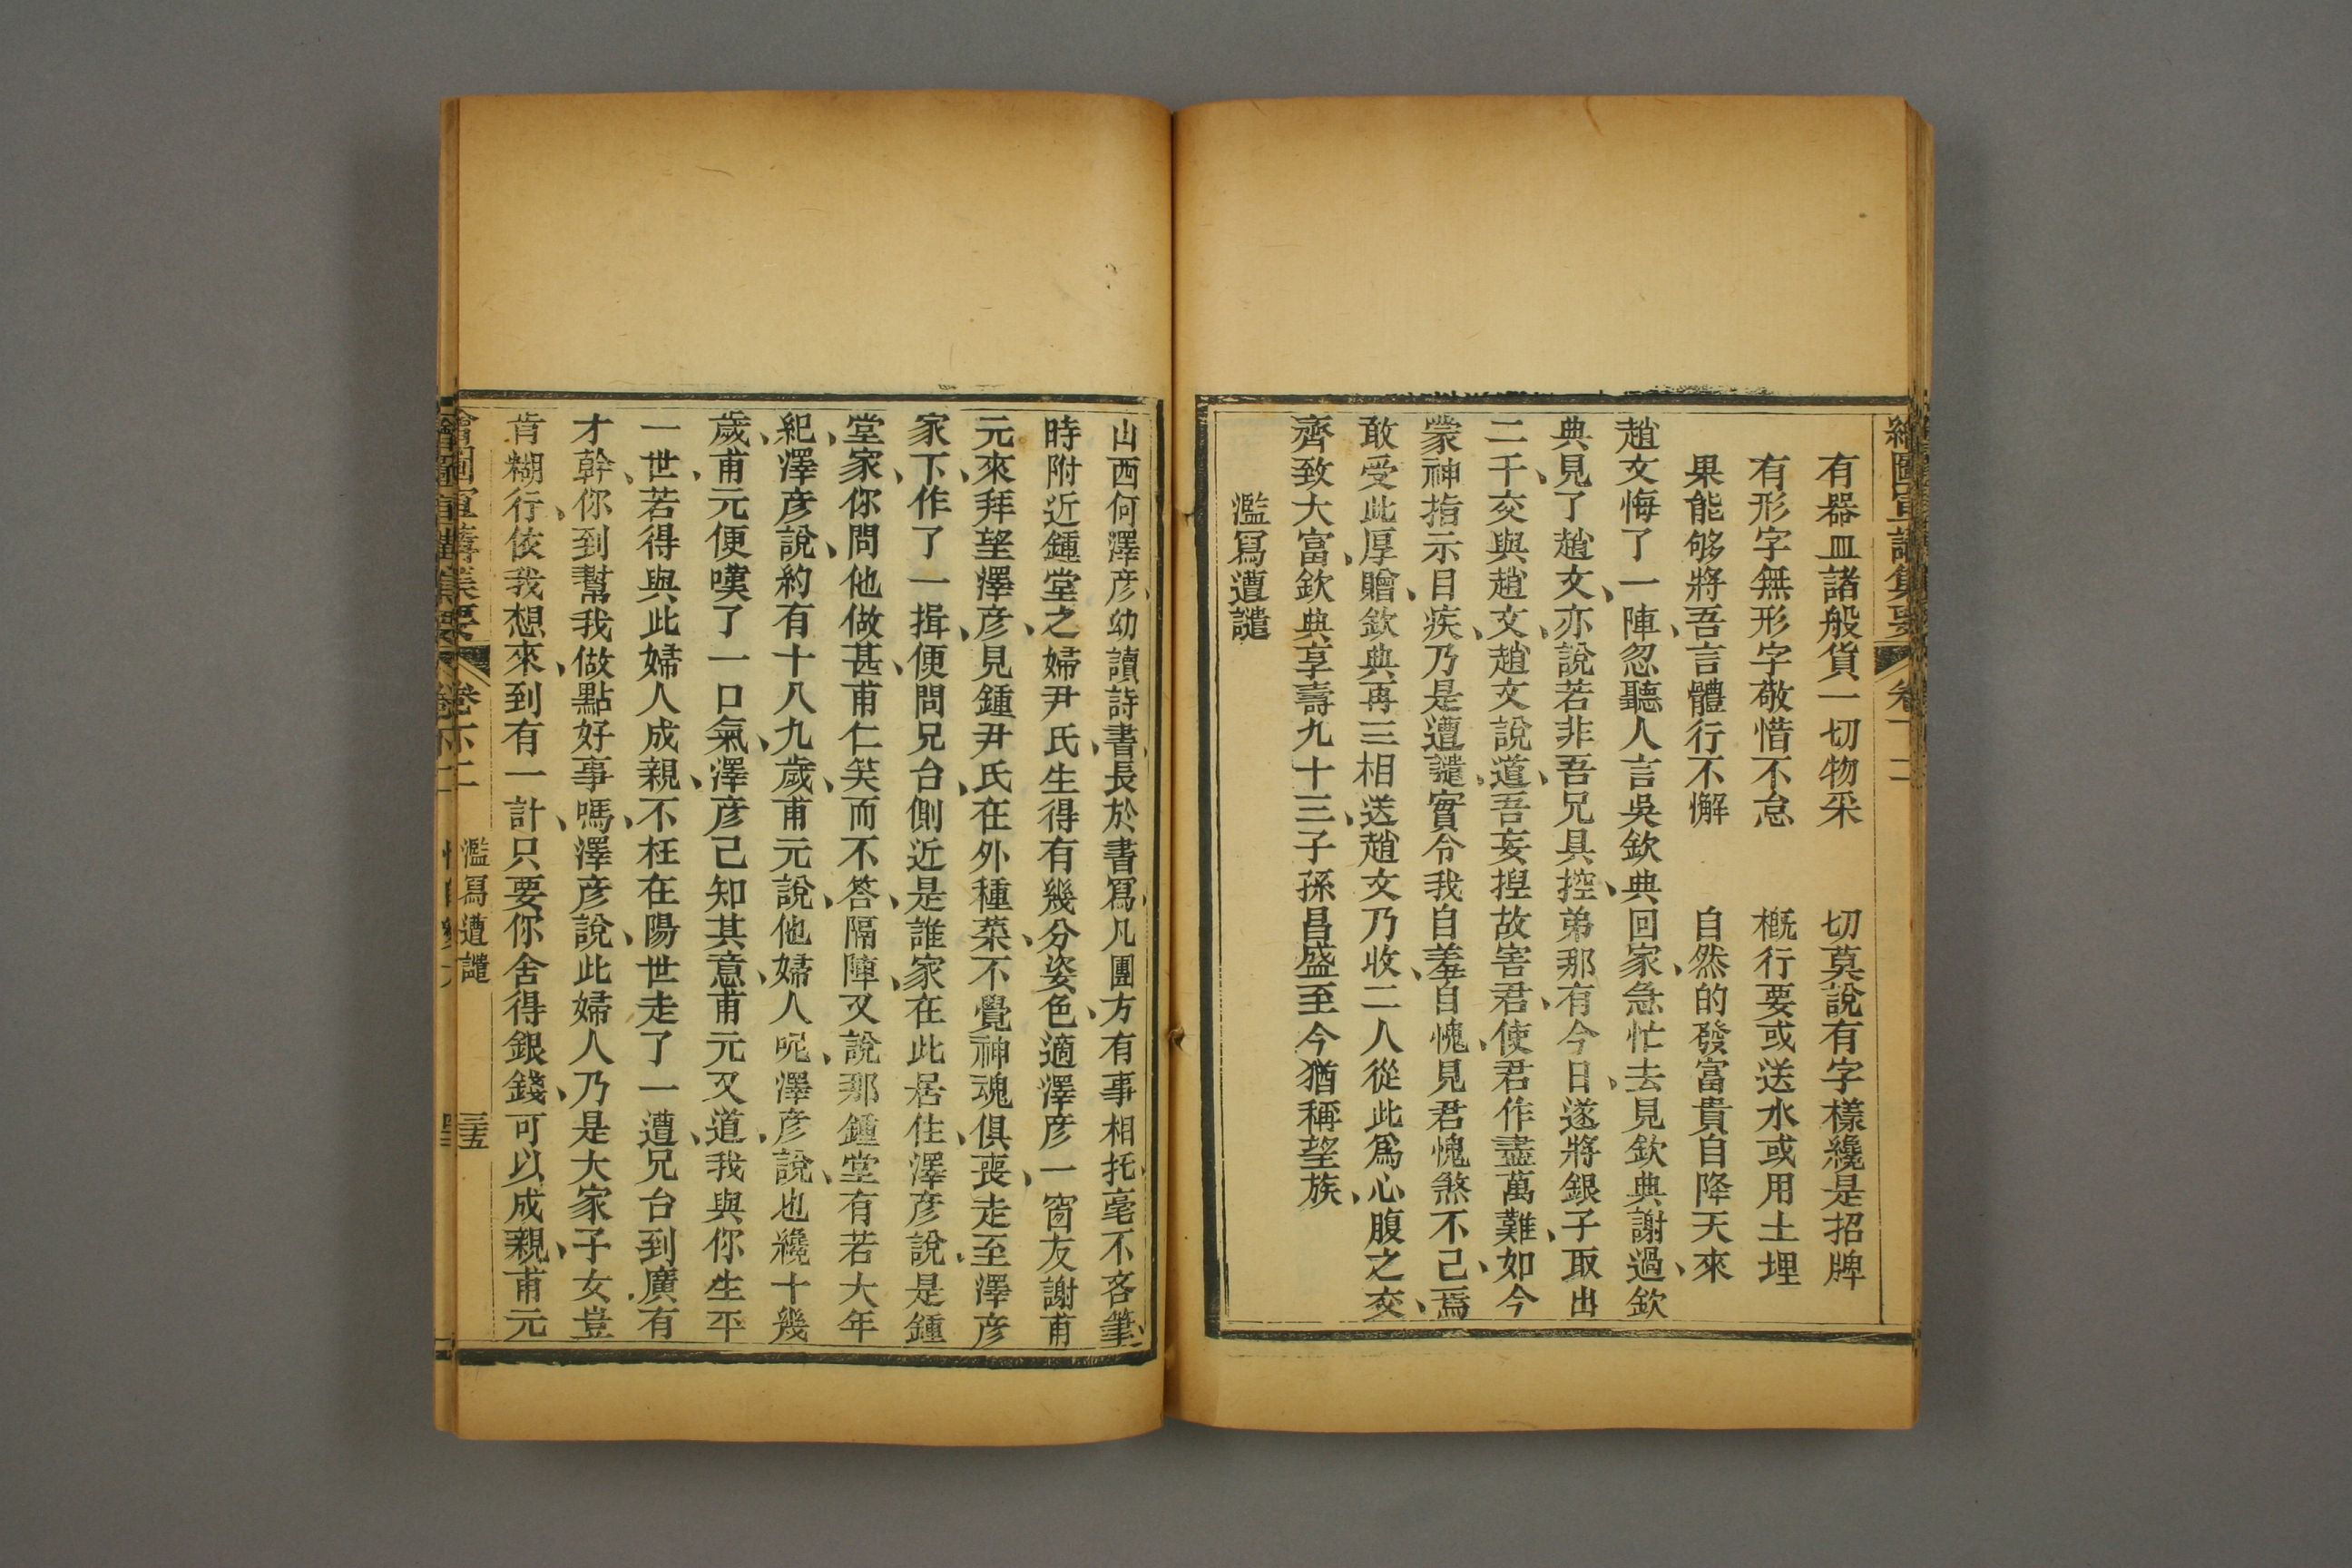 有器皿諸般貨一切物采　切莫說有字樣纔是招牌
有形字無形字敬惜不怠　概行要或送水或用土埋
果能够將吾言體行不懈　自然的發富貴自降天來
趙文悔了一陣、忽聽人言吳欽典回家、急忙去見欽典謝過、欽
典、見了趙文、亦說若非吾兄具控、弟那有今日、遂將銀子取出
二千、交與趙文、趙文說道、吾妄揑故害君、使君作盡萬難、如今
蒙神指示目疾、乃是遭譴、實令我自羞自愧、見君愧煞不己、焉
敢受此厚贈、欽典再三相送、趙文乃收、二人從此爲心腹之交、
齊致大富、欽典享壽九十三、子孫昌盛、至今猶稱望族、
濫寫遭譴
山西何澤彥、幼讀詩書、長於書寫、凡團方有事相托、毫不吝筆、
時附近鍾堂之婦尹氏、生得有幾分姿色、適澤彥一窗友謝甫
元、來拜望澤彥、見鍾尹氏在外種菜、不覺神魂俱喪、走至澤彥
家、下作了一揖、便問兄台、側近是誰家在此居住、澤彥說、是鍾
堂家、你問他做甚、甫仁笑而不答、隔陣、又說那鍾堂有若大年
紀、澤彥說、約有十八九歲、甫元說、他婦人呢、澤彥說、也纔十幾
歲、甫元便嘆了一口氣、澤彥己知其意、甫元又道、我與你生平
一世、若得與此婦人成親、不枉在陽世走了一遭、兄台到廣有
才幹、你到幫我做點好事嗎、澤彥說、此婦人乃是大家子女、豈
肯糊行、依我想來、到有一計、只要你舍得銀錢、可以成親、甫元
卷下二　濫寫遭譴　三五